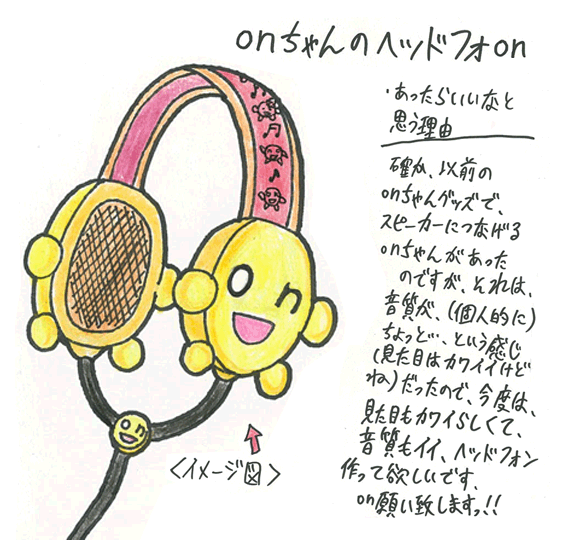 onちゃんのヘッドフォon
・あったらいいなと
思う理由
確か、以前の
onちゃんグッズで、
スピーカーにつなげる
onちゃんがあった
のですが、それは、
音質が、(個人的に)
ちょっと…、という感じ
(見た目はカワイイけど
ね)だったので、今度は、
見た目もカワイらしくて、
音質もイイ、ヘッドフォン
作って欲しいです、
on願い致しますっ!!
on
on
<イメージ図>